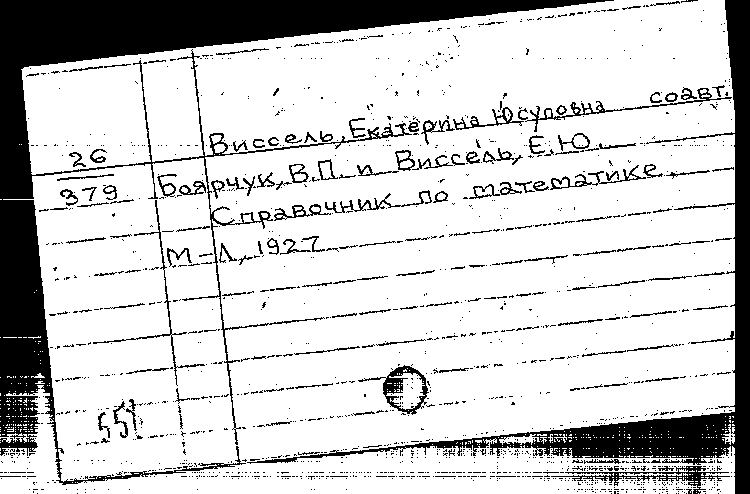 Виссель, Екатерина Юсуповна соавт.
26
379
Боярчук, В.П. и Виссель, Е.Ю.
Справочник по математике.
М-Л, 1927
551